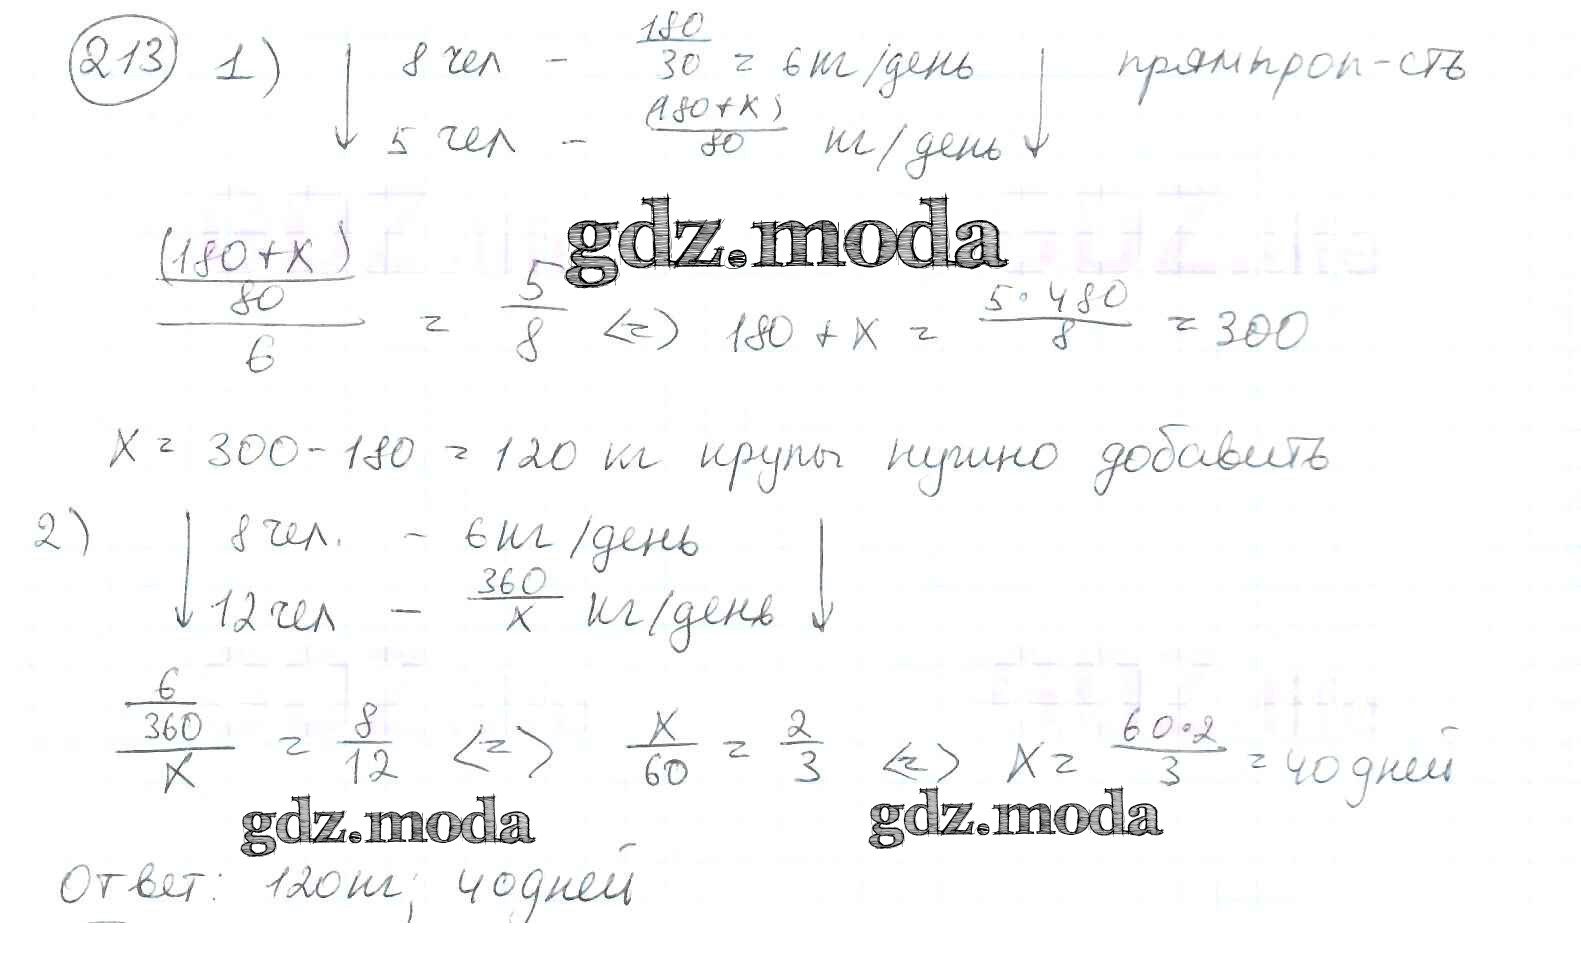 213 1) 8 чел - 180/30 = 6 кг/день прям проп-сть
5 чел - (180+x)/80 кг/день
gdz.moda
((180+x)/80)/6 = 5/8 <=> 180 + x = 5·480/8 = 300
x = 300 - 180 = 120 кг крупы нужно добавить
2) 8 чел. - 6 кг/день
12 чел - 360/x кг/день
6/(360/x) = 8/12 <=> x/60 = 2/3 <=> x = 60·2/3 = 40 дней
gdz.moda gdz.moda
Ответ: 120 кг; 40 дней